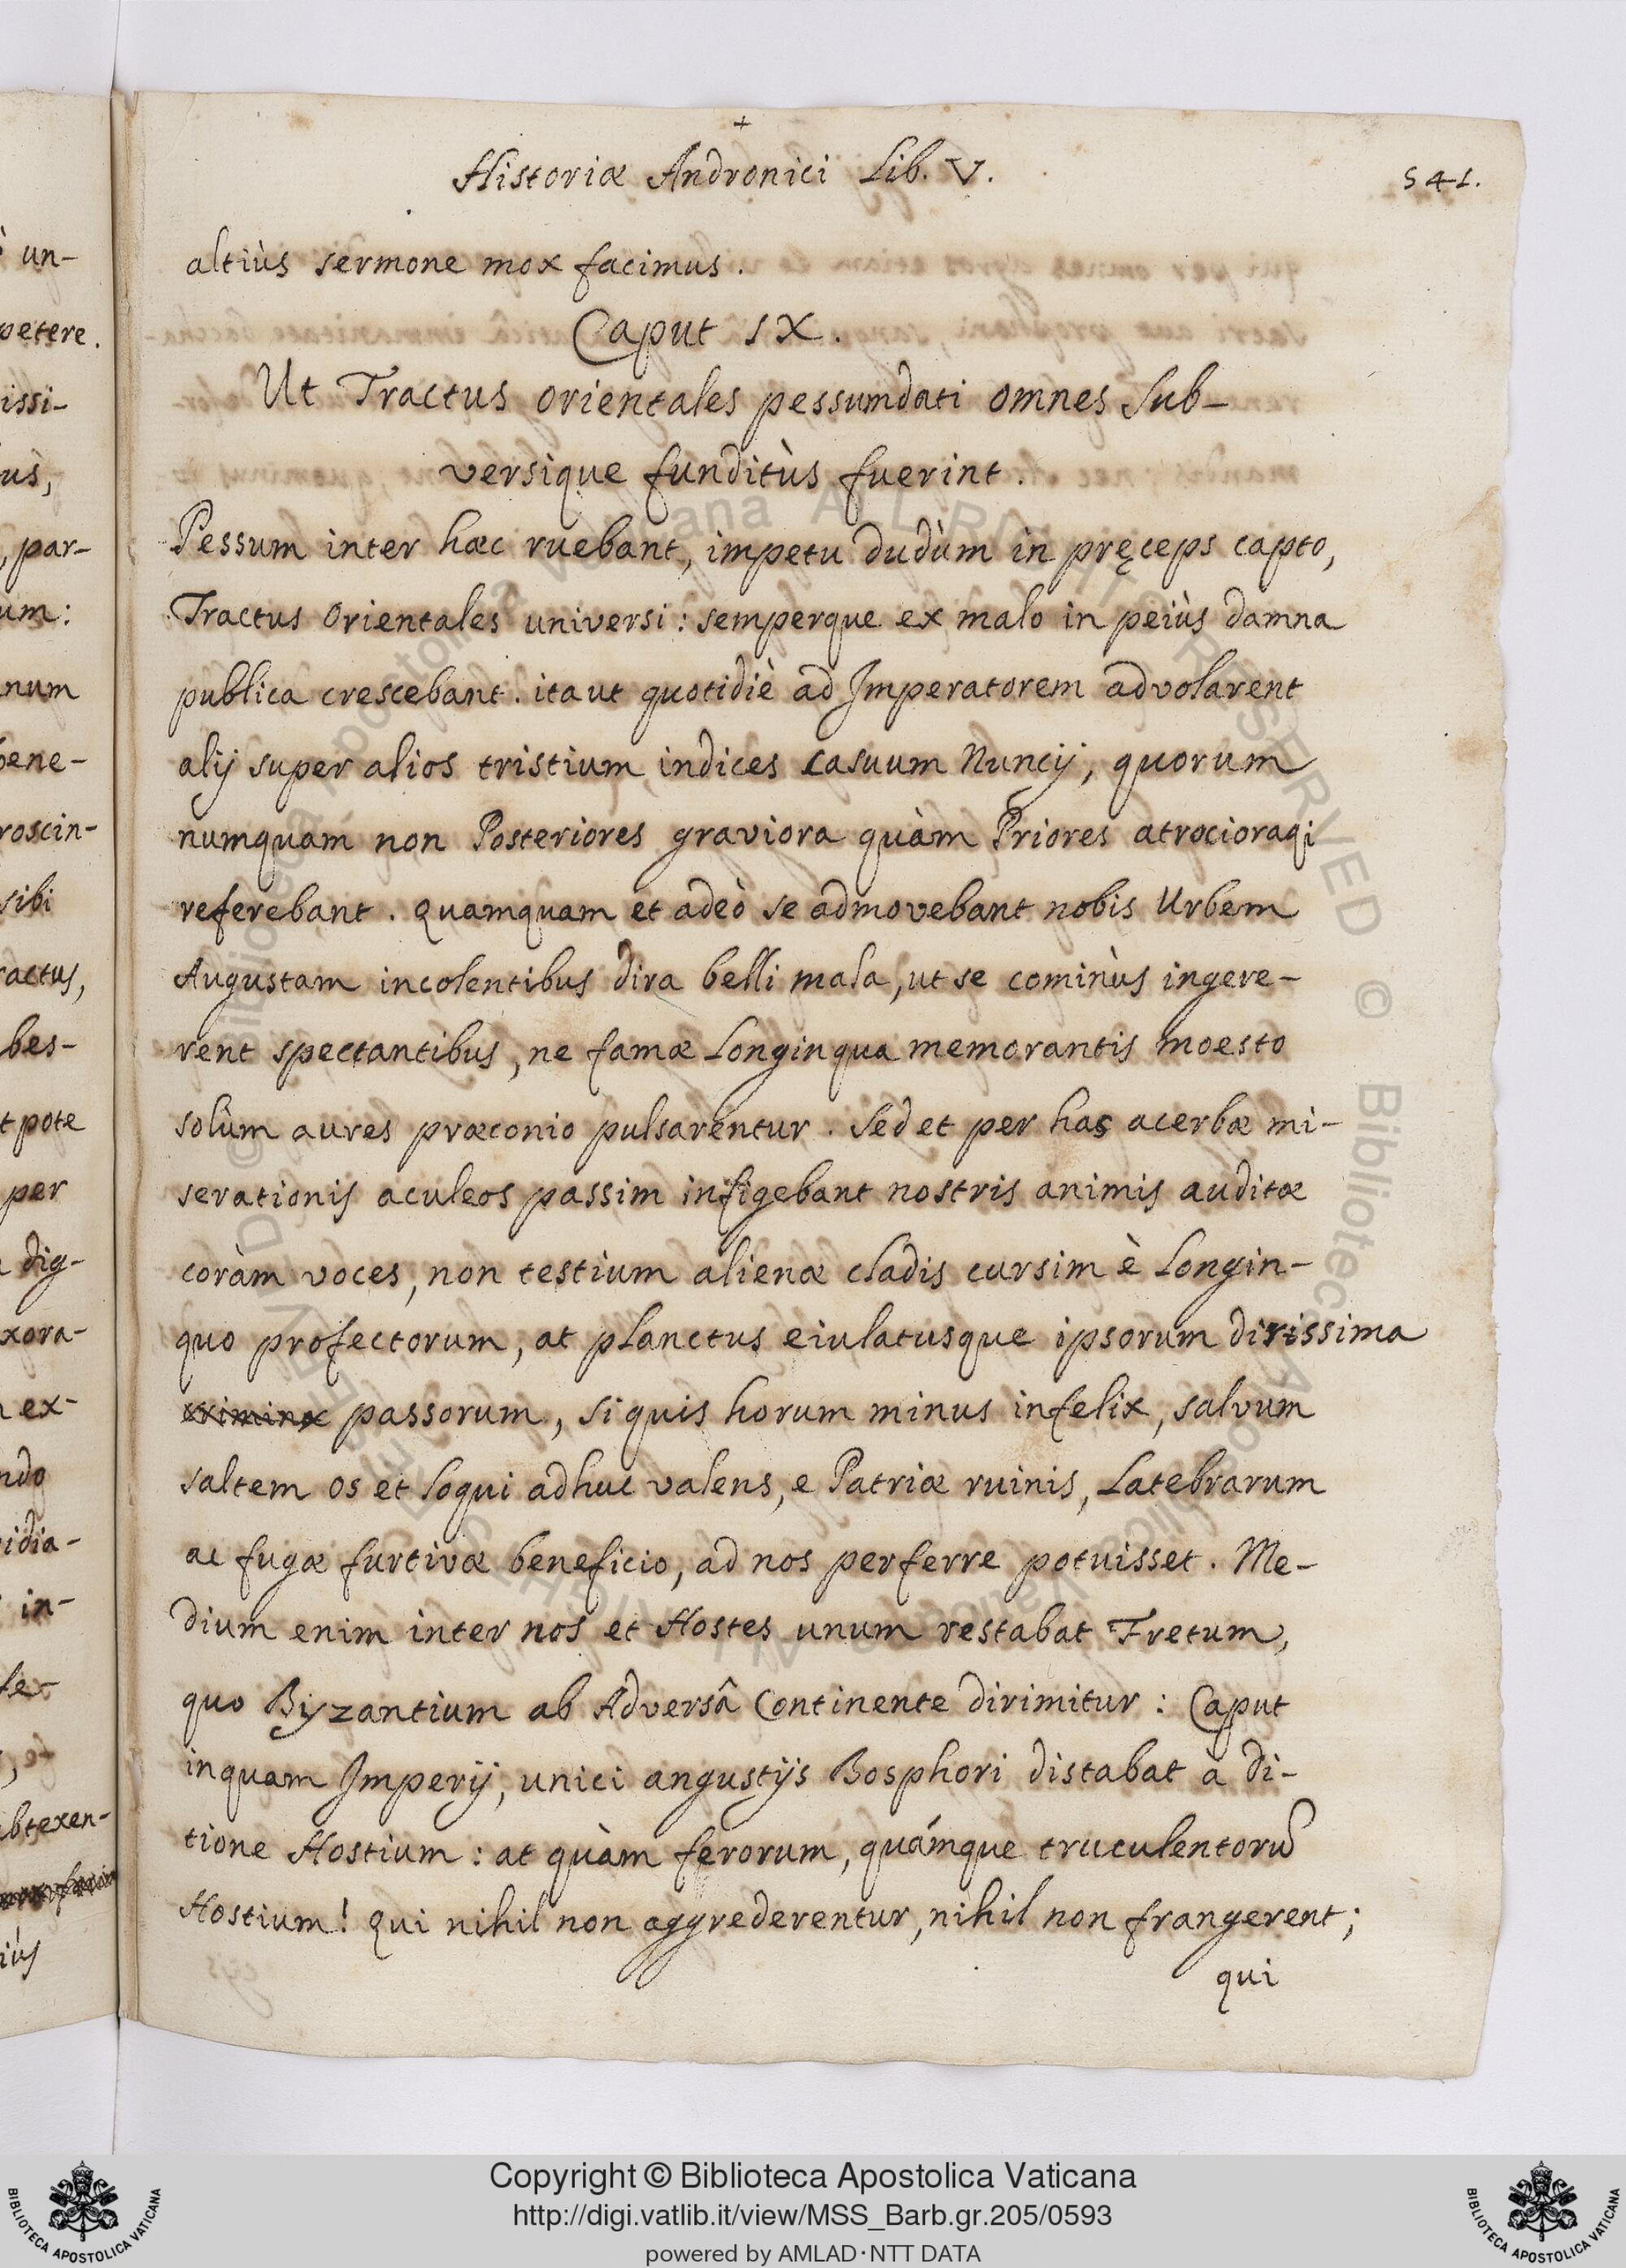 un-
petere.
issi-
ùs,
, par-
um:
num
bene-
roscin-
sibi
ractus,
bes-
t pote
per
dig-
xora-
ex-
ndo
idia-
in-
btexen-
iùs
+
Historiæ Andronici Lib. V.
541.
altiùs sermone mox facimus.
Caput IX.
Ut Tractus orientales pessumdati omnes Sub-
versique funditùs fuerint.
Pessum inter hæc ruebant, impetu dudùm in pręceps capto,
Tractus Orientales universi: semperque ex malo in peiùs damna
publica crescebant. ita ut quotidiè ad Imperatorem advolarent
alij super alios tristium indices casuum Nuncij, quorum
numquam non Posteriores graviora quàm Priores atrocioraqi
referebant. Quamquam et adeò se admovebant nobis Urbem
Augustam incolentibus dira belli mala, ut se cominùs ingere-
rent spectantibus, ne famæ Longinqua memorantis moesto
solùm aures præconio pulsarentur. Sed et per has acerbæ mi-
serationis aculeos passim infigebant nostris animis auditæ
coràm voces, non testium alienæ cladis cursim è Longin-
quo profectorum, at planctus eiulatusque ipsorum dirissima
passorum, siquis horum minus infelix, salvum
saltem os et loqui adhuc valens, e Patriæ ruinis, Latebrarum
ac fugæ furtivæ beneficio, ad nos perferre potuisset. Me-
dium enim inter nos et Hostes unum restabat Fretum,
quo Byzantium ab Adversâ Continente dirimitur: Caput
inquam Imperij, unici angustijs Bosphori distabat à di-
tione Hostium: at quàm ferorum, quámque truculentorū
Hostium! Qui nihil non aggrederentur, nihil non frangerent;
qui
Copyright © Biblioteca Apostolica Vaticana
http://digi.vatlib.it/view/MSS_Barb.gr.205/0593
powered by AMLAD·NTT DATA
BIBLIOTECA APOSTOLICA VATICANA
BIBLIOTECA APOSTOLICA VATICANA